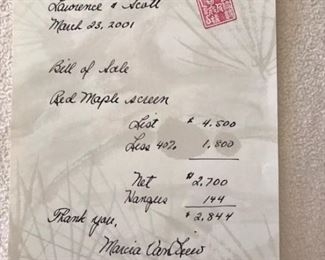 Lawrence & Scott
March 23, 2001
Bill of Sale
Red Maple screen
List $ 4,500
Less 40% 1,800
Net $2,700
Hangers 144
$2,844
Thank you,
Marcia